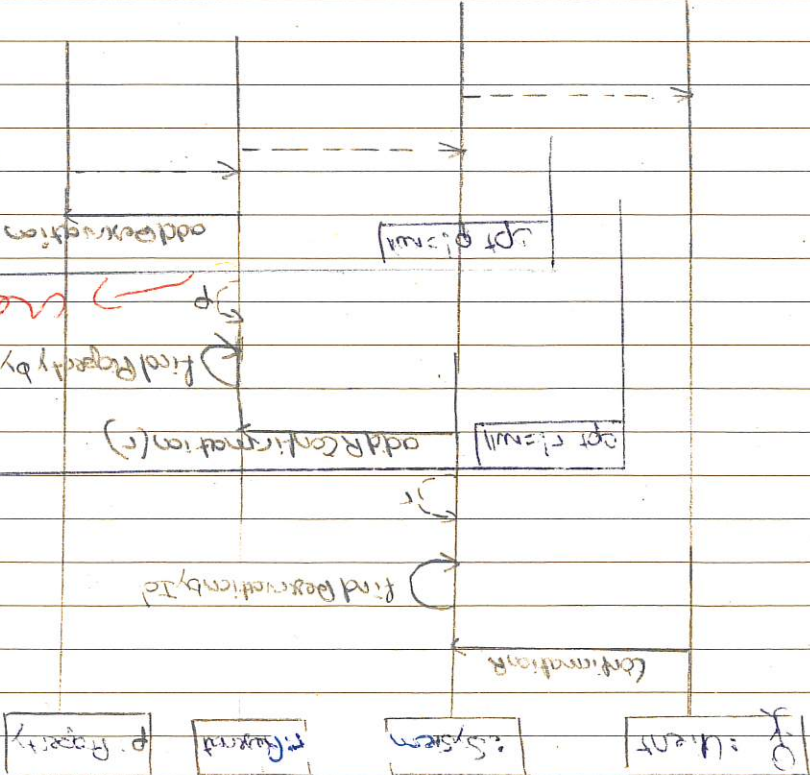 :Client :System p:Property
ConfirmationR
findReservationbyId
r
opt r!=null addRConfirmation(r)
findPropertyby
p
opt p!=null addReservation